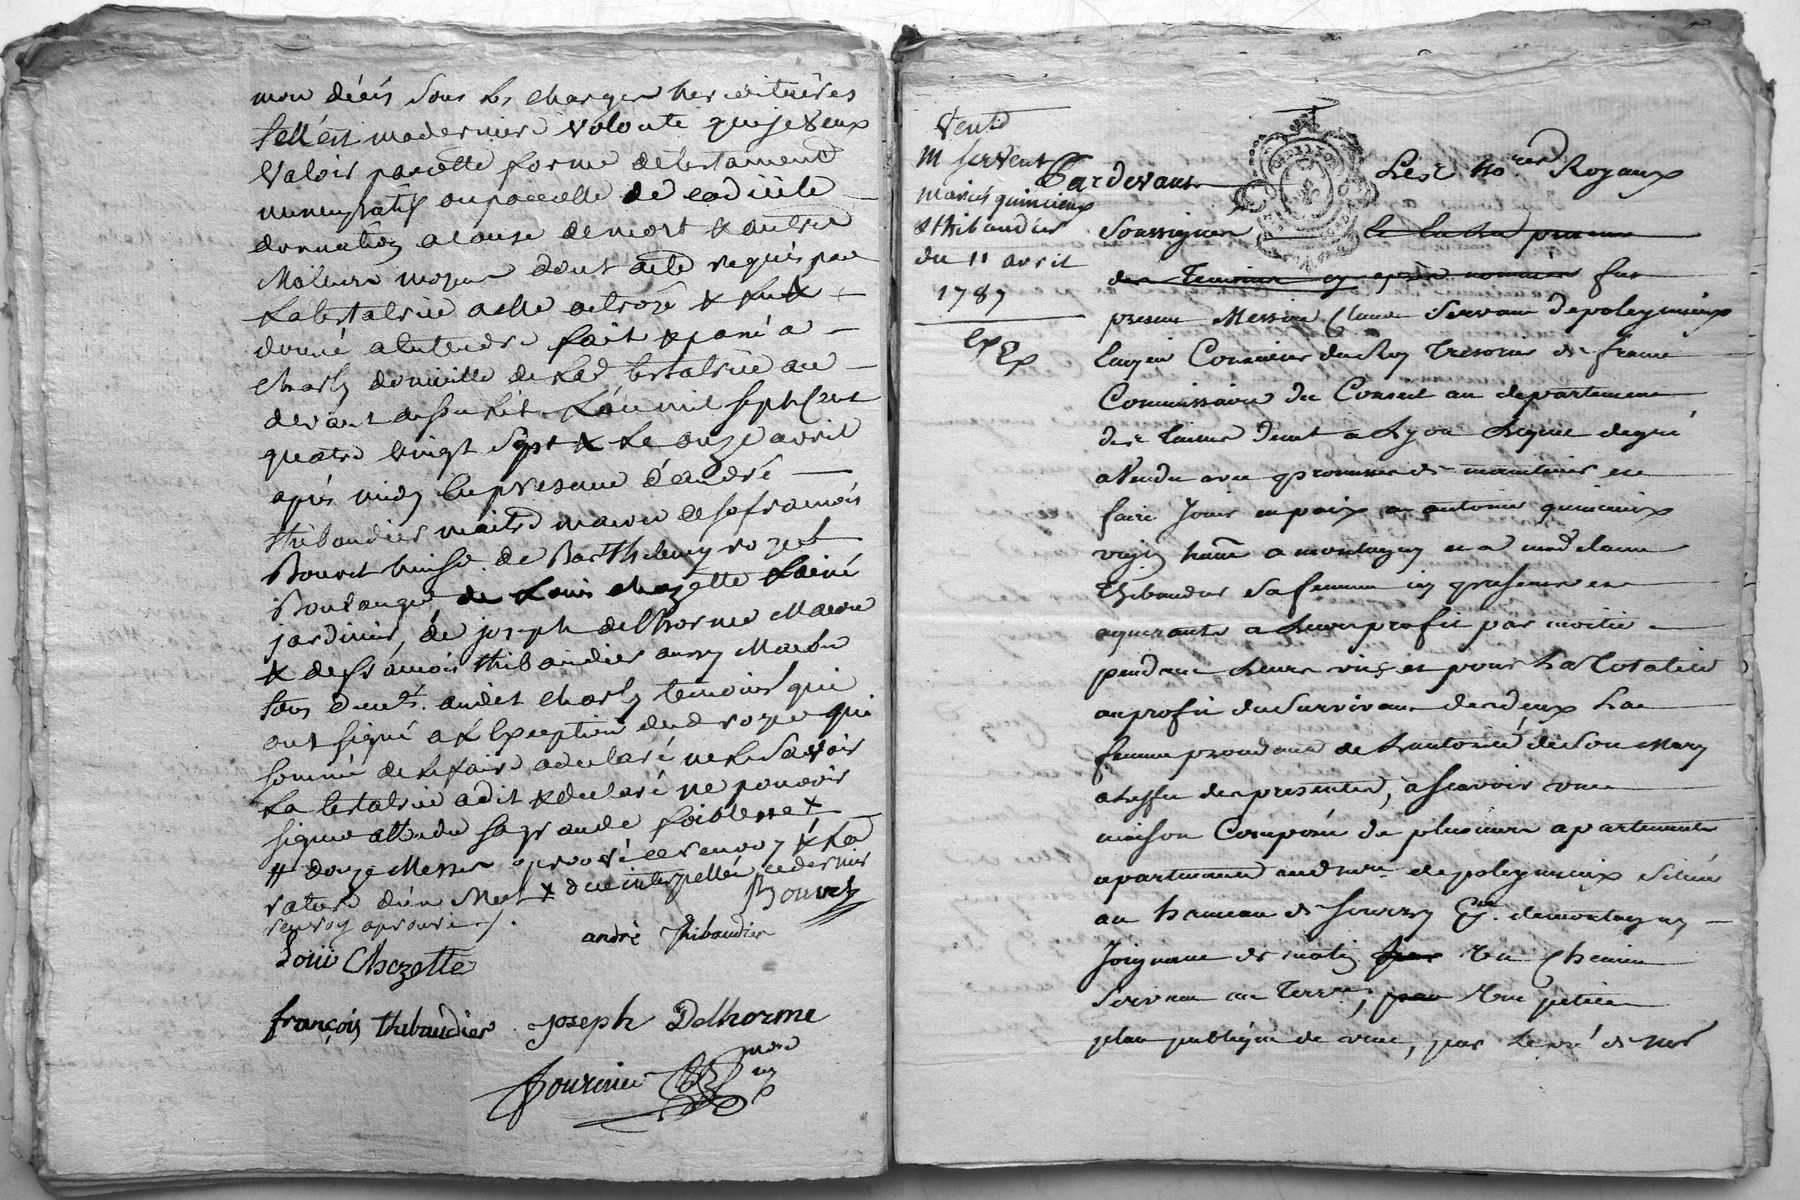 mon décés sous les charges hereditaires
telle est maderniere volonté queje veux
valoir parcette forme detestament
nuncupatif ouparcelle de codicile
donnation acause demort & autres
Meilleurs moyens dont acte requis par
Latestatrice aelle octroyé & Lu &
donné aentendre fait & passé a
charly domicille de Lad testatrice au
devant desonlit L'an mil septcent
quatre vingt sept & Le onze avril
après midy En presence d'andré
thibaudier maitre macon de sr francois
Bouvet huissier de Barthelemy rozet
Boulanger de Louis chazette Lainé
jardinier, de joseph delhorme Macon
& de francois thibaudier aussy Macon
tous demts. audit charly temoins qui
ont signé a l'Exception dud rozet qui
sommé de le faire adeclaré ne le savoir
La testatrice adit & declaré ne pouvoir
signer attendu sa grande foiblesse &
# douze Messes aprouvé le renvoy & La
rature d'un Mot & interpellée ce dernier
renvoy aprouvé /.
Bouvet
andré Thibaudier
Loüi Chazette
françois thibaudier joseph Delhorme
fournier
Vente
M Servent
mariés quinieux
& thibaudier
du 11 avril
1787
Ex Ex
Pardevant Les Nores Royaux
Soussignés
des Temoins cy après nommés fut
present Messire Claude Servant depoleymieux
Ecuyer Conseiller du Roy Tresorier de france
Commissaire du Conseil au departement
des Tailles dem.t a Lyon Lequel degré
a Vendu avec promesse de maintenir et
faire Jouir en paix a antoine quinieux
hab.t a montagny et a mad.elaine
Thibaudier Sa femme icy presents et
aquerants a Leur profit par moitié
pendant Leurs vies et pour La Totalité
au profit du Survivant des deux La
femme procedant de L'autorité de Son Mary
a L'effet des presentes, à Scavoir une
maison Composée de plusieurs apartements
apartenante aud sieur depoleymieux Située
au hameau de Sourzy demontagny
Joignant de matin Un Chemin
Servant au Terres, Une petite
place publique de vent, par Le pré de Mr